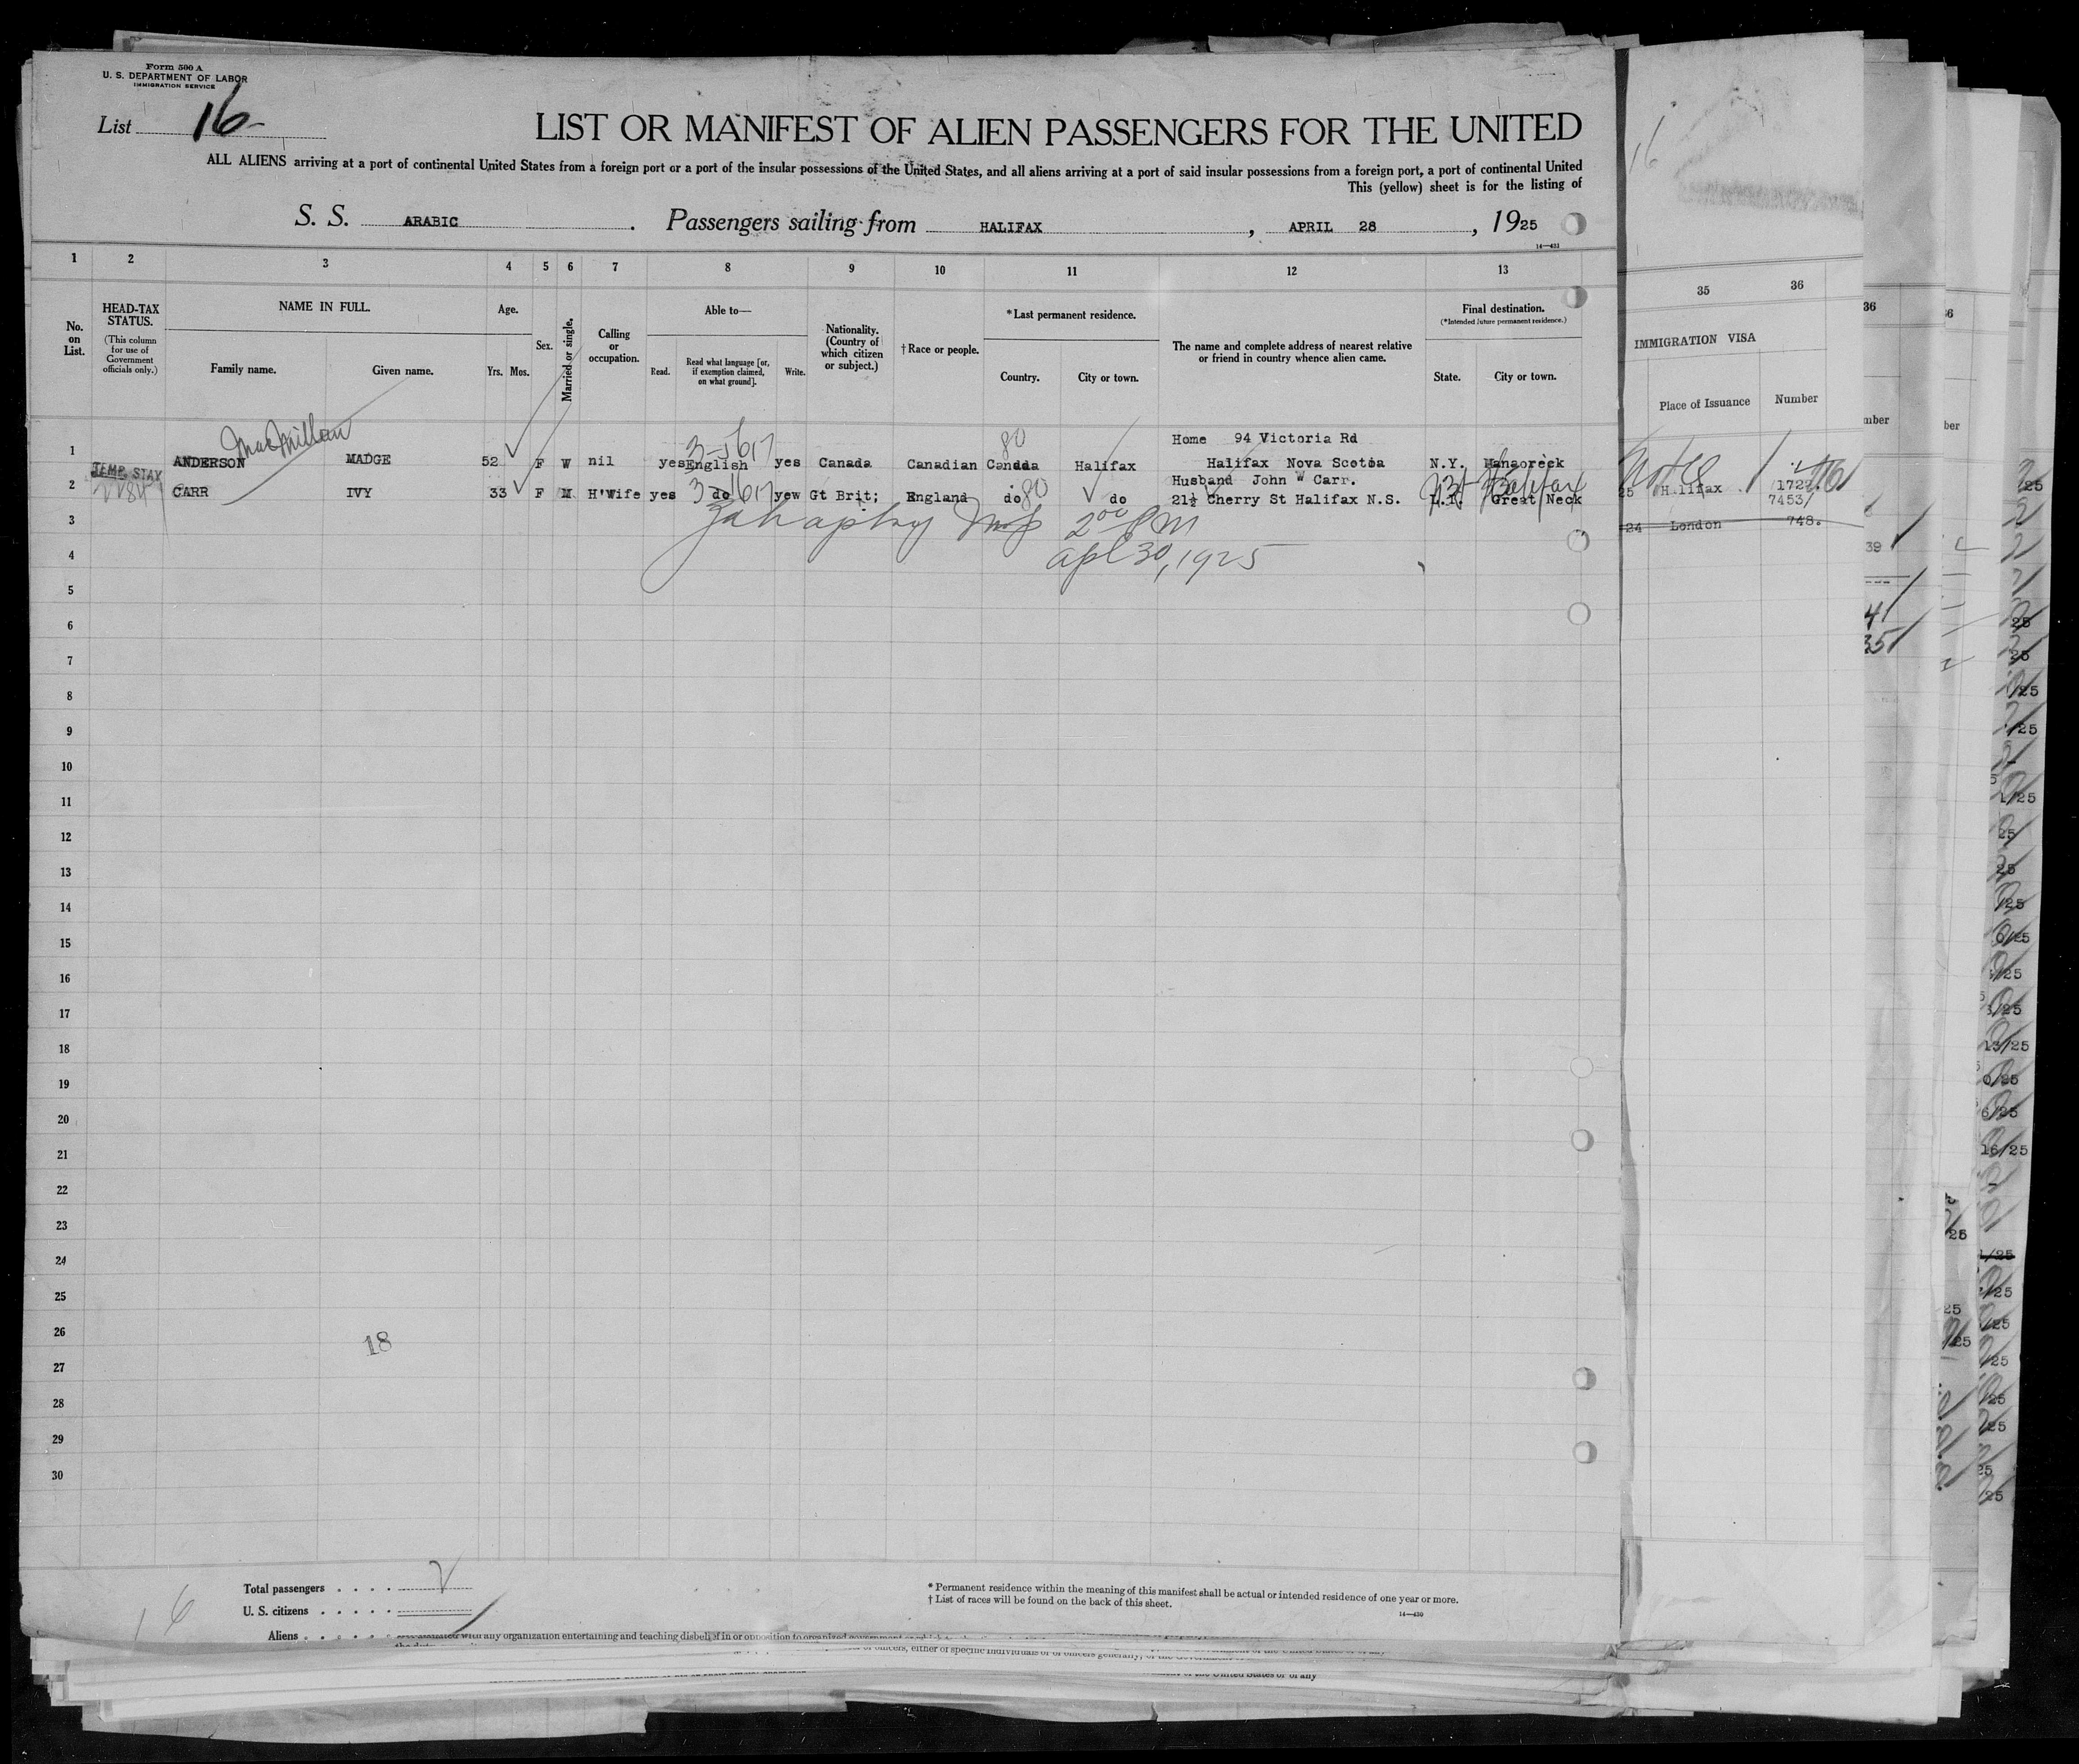 Form 500 A
U. S. DEPARTMENT OF LABOR
IMMIGRATION SERVICE
List 16-
LIST OR MANIFEST OF ALIEN PASSENGERS FOR THE UNITED
ALL ALIENS arriving at a port of continental United States from a foreign port or a port of the insular possessions of the United States, and all aliens arriving at a port of said insular possessions from a foreign port, a port of continental United
This (yellow) sheet is for the listing of
S. S. ARABIC. Passengers sailing from HALIFAX, APRIL 28, 1925
14-431
1 2 3 4 5 6 7 8 9 10 11 12 13
No. on List.
HEAD-TAX STATUS.
(This column for use of Government officials only.)
NAME IN FULL.
Family name. Given name.
Age.
Yrs. Mos.
Sex.
Married or single.
Calling or occupation.
Able to—
Read. Read what language [or, if exemption claimed, on what ground]. Write.
Nationality. (Country of which citizen or subject.)
†Race or people.
*Last permanent residence.
Country. City or town.
The name and complete address of nearest relative or friend in country whence alien came.
Final destination.
(*Intended future permanent residence.)
State. City or town.
MacMillan
3-5617
80
Home 94 Victoria Rd
1 ANDERSON MADGE 52 F W nil yes English yes Canada Canadian Canada Halifax Halifax Nova Scotia N.Y.
TEMP. STAY
Husband John W Carr.
2 CARR IVY 33 F M H'Wife yes do yew Gt Brit; England do 80 do 21½ Cherry St Halifax N.S. L.I. Great Neck
3
2 00 PM
4
apl 30, 1925
5
6
7
8
9
10
11
12
13
14
15
16
17
18
19
20
21
22
23
24
25
26
18
27
28
29
30
Total passengers . . . . 2
U. S. citizens . . . . .
Aliens . . . . .
16
* Permanent residence within the meaning of this manifest shall be actual or intended residence of one year or more.
† List of races will be found on the back of this sheet.
14-430
16
35 36
IMMIGRATION VISA
Place of Issuance Number
25 Halifax
7453
24 London 748.
36
mber
39
41
351
ber